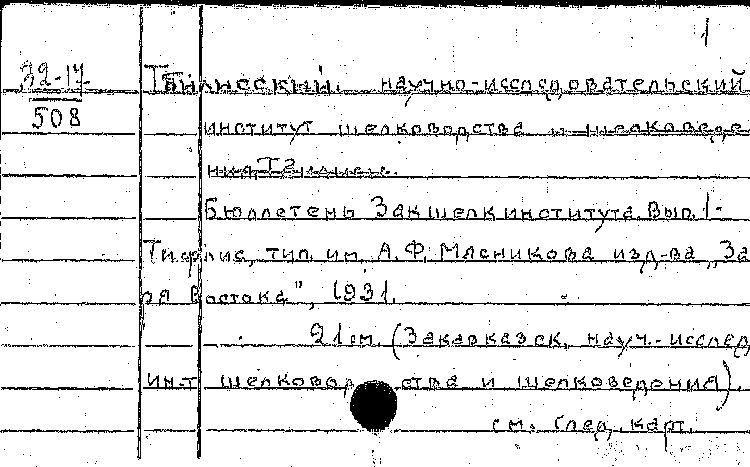 1
32-17
508
Тбилисский научно-исследовательский
институт шелководства и шелковеде
ния, Тбилиси.
Бюллетень Закшелкинститута. Вып. 1-
Тифлис, тип. им. А.Ф. Мясникова изд-ва „За
ря Востока", 1931.
21 см. (Закавказск. науч.-исслед.
ин-т шелководства и шелковедения).
см. след. карт.